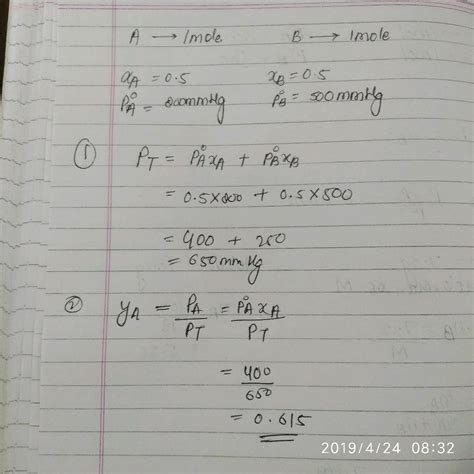 A → 1mole B → 1mole
xA = 0.5 xB = 0.5
P°A = 800mmHg P°B = 500mmHg
① PT = P°A xA + P°B xB
= 0.5×800 + 0.5×500
= 400 + 250
= 650mmHg
② yA = PA/PT = P°A xA/PT
= 400/650
= 0.615
2019/4/24 08:32